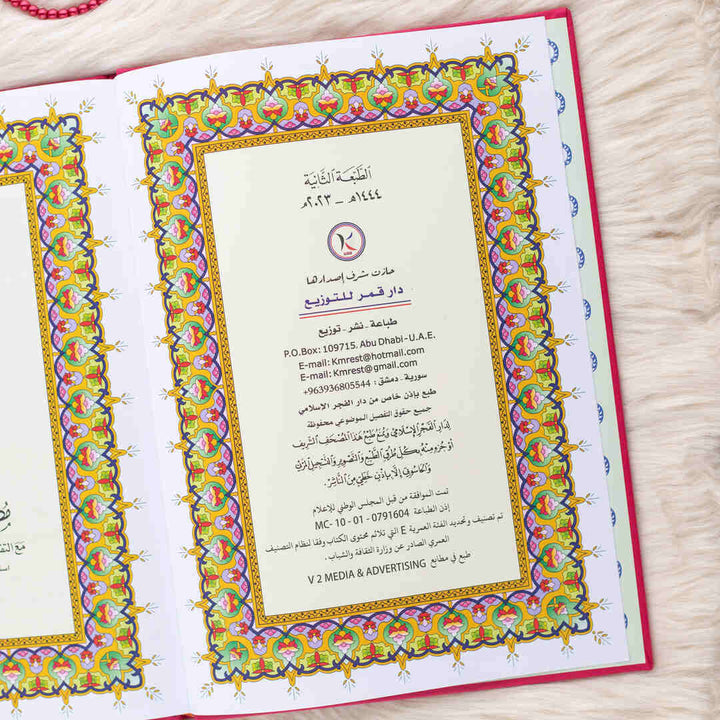 الطَّبْعَة الثَّانِيَة
١٤٤٤هـ - ٢٠٢٣م
حازت شرف إصدارها
دار قمر للتوزيع
طباعة - نشر - توزيع
P.O.Box: 109715. Abu Dhabi-U.A.E.
E-mail: Kmrest@hotmail.com
E-mail: Kmrest@gmail.com
سورية - دمشق : 963936805544+
طبع بإذن خاص من دار الفجر الاسلامي
جميع حقوق التفصيل الموضوعي محفوظة
لِدَارِ الْفَجْرِ الإِسْلَامِيِّ وَيُمْنَعُ طَبْعُ هَذَا الْمُصْحَفِ الشَّرِيفِ
أَوْ جُزْءٍ مِنْهُ بِكُلِّ طُرُقِ الطَّبْعِ وَالتَّصْوِيرِ وَالتَّسْجِيلِ الْمَرْئِيِّ
وَالْحَاسُوبِيِّ إِلَّا بِإِذْنٍ خَطِّيٍّ مِنَ النَّاشِرِ.
تمت الموافقة من قبل المجلس الوطني للإعلام
إذن الطباعة MC- 10 - 01 - 0791604
تم تصنيف وتحديد الفئة العمرية E التي تلائم محتوى الكتاب وفقا لنظام التصنيف
العمري الصادر عن وزارة الثقافة والشباب.
طبع في مطابع V 2 MEDIA & ADVERTISING